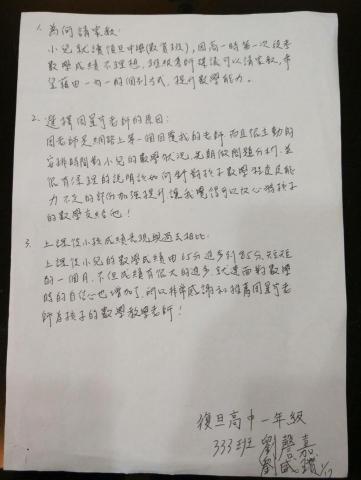 1. 為何請家教:
小兒就讀復旦中學(數育班),因高一時第一次段考
數學成績不理想,班級導師建議可以請家教,希
望藉由一對一的個別方式,提升數學能力。
2. 選擇周星宇老師的原因:
周老師是網路上第一個回覆我的老師而且很主動的
安排時間對小兒的數學狀況,先期做問題分析,並
很有條理的說明該如何針對孩子數學程度及能
力不足的部份加強提升讓我覺得可以放心將孩子
的數學交給他!
3. 上課後小孩成績表現與過去相比:
上課後小兒的數學成績由65分進步到85分,短短
的一個月,不但成績有很大的進步,就連面對數學
時的自信心也增加了,所以非常感謝和推薦周星宇老
師為孩子的數學教學老師!
復旦高中一年級
333班 劉馨嘉
劉 1/12